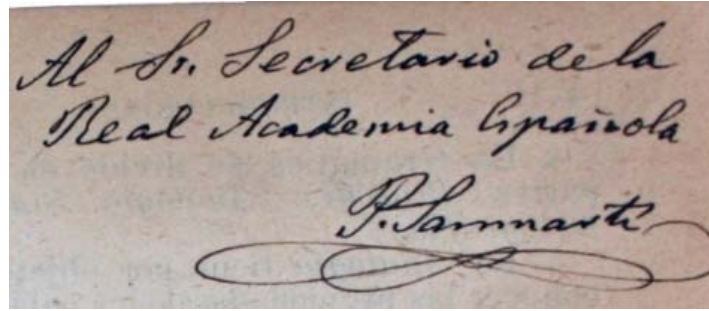 Al Sr. Secretario de la
Real Academia Española
P. Sanmartí